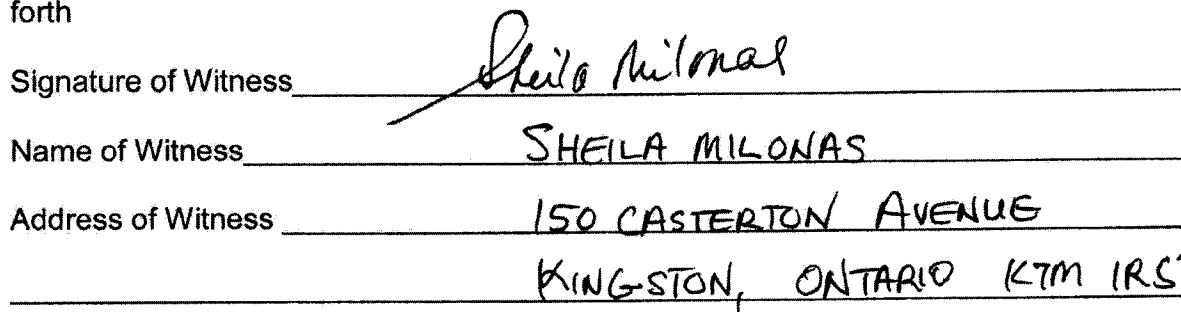 forth
Signature of Witness Sheila Milonas
Name of Witness SHEILA MILONAS
Address of Witness 150 CASTERTON AVENUE
KINGSTON, ONTARIO K7M 1R5